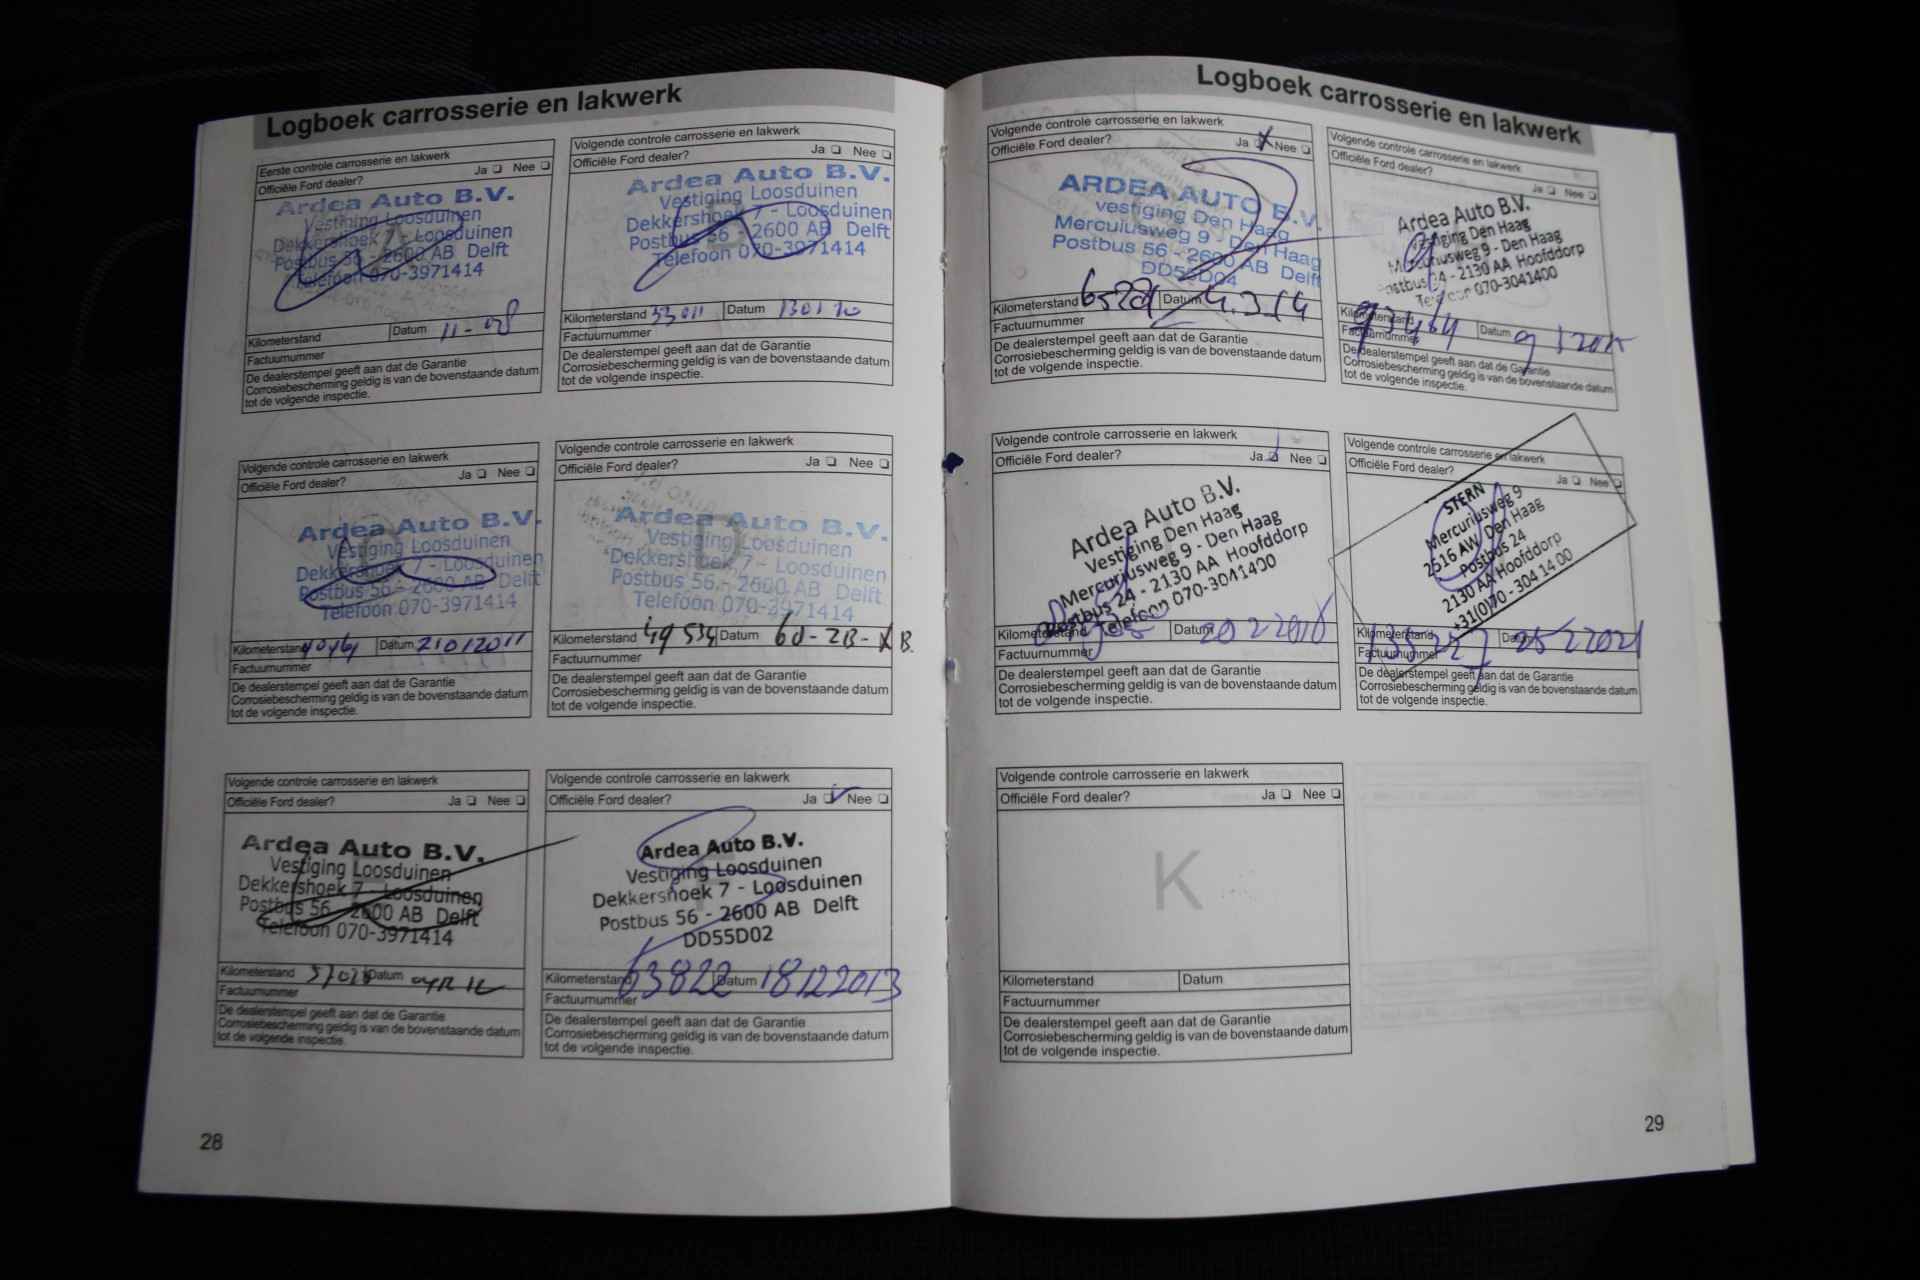 Logboek carrosserie en lakwerk
Eerste controle carrosserie en lakwerk
Officiële Ford dealer? Ja Nee
Ardea Auto B.V.
Vestiging Loosduinen
Dekkershoek 7 - Loosduinen
Postbus 56 - 2600 AB Delft
Telefoon 070-3971414
Kilometerstand Datum 11-08
Factuurnummer
De dealerstempel geeft aan dat de Garantie
Corrosiebescherming geldig is van de bovenstaande datum
tot de volgende inspectie.
Volgende controle carrosserie en lakwerk
Officiële Ford dealer? Ja Nee
Ardea Auto B.V.
Vestiging Loosduinen
Dekkershoek 7 - Loosduinen
Postbus 56 - 2600 AB Delft
Telefoon 070-3971414
Kilometerstand 33011 Datum
Factuurnummer
De dealerstempel geeft aan dat de Garantie
Corrosiebescherming geldig is van de bovenstaande datum
tot de volgende inspectie.
Volgende controle carrosserie en lakwerk
Officiële Ford dealer? Ja Nee
Ardea Auto B.V.
Vestiging Loosduinen
Dekkershoek 7 - Loosduinen
Postbus 56 - 2600 AB Delft
Telefoon 070-3971414
Kilometerstand Datum 21012011
Factuurnummer
De dealerstempel geeft aan dat de Garantie
Corrosiebescherming geldig is van de bovenstaande datum
tot de volgende inspectie.
Volgende controle carrosserie en lakwerk
Officiële Ford dealer? Ja Nee
Ardea Auto B.V.
Vestiging Loosduinen
Dekkershoek 7 - Loosduinen
Postbus 56 - 2600 AB Delft
Telefoon 070-3971414
Kilometerstand 49534 Datum
Factuurnummer
De dealerstempel geeft aan dat de Garantie
Corrosiebescherming geldig is van de bovenstaande datum
tot de volgende inspectie.
Volgende controle carrosserie en lakwerk
Officiële Ford dealer? Ja Nee
Ardea Auto B.V.
Vestiging Loosduinen
Dekkershoek 7 - Loosduinen
Postbus 56 - 2600 AB Delft
Telefoon 070-3971414
Kilometerstand Datum
Factuurnummer
De dealerstempel geeft aan dat de Garantie
Corrosiebescherming geldig is van de bovenstaande datum
tot de volgende inspectie.
Volgende controle carrosserie en lakwerk
Officiële Ford dealer? Ja Nee
Ardea Auto B.V.
Vestiging Loosduinen
Dekkershoek 7 - Loosduinen
Postbus 56 - 2600 AB Delft
DD55D02
Kilometerstand 63822 Datum 18122013
Factuurnummer
De dealerstempel geeft aan dat de Garantie
Corrosiebescherming geldig is van de bovenstaande datum
tot de volgende inspectie.
28
Logboek carrosserie en lakwerk
Volgende controle carrosserie en lakwerk
Officiële Ford dealer? Ja Nee
ARDEA AUTO B.V.
vestiging Den Haag
Mercuriusweg 9 - Den Haag
Postbus 56 - 2600 AB Delft
DD55D04
Kilometerstand Datum 4.3.14
Factuurnummer
De dealerstempel geeft aan dat de Garantie
Corrosiebescherming geldig is van de bovenstaande datum
tot de volgende inspectie.
Volgende controle carrosserie en lakwerk
Officiële Ford dealer? Ja Nee
Ardea Auto B.V.
Vestiging Den Haag
Mercuriusweg 9 - Den Haag
Postbus 24 - 2130 AA Hoofddorp
Telefoon 070-3041400
Kilometerstand 93464 Datum
Factuurnummer
De dealerstempel geeft aan dat de Garantie
Corrosiebescherming geldig is van de bovenstaande datum
tot de volgende inspectie.
Volgende controle carrosserie en lakwerk
Officiële Ford dealer? Ja Nee
Ardea Auto B.V.
Vestiging Den Haag
Mercuriusweg 9 - Den Haag
Postbus 24 - 2130 AA Hoofddorp
Telefoon 070-3041400
Kilometerstand Datum
Factuurnummer
De dealerstempel geeft aan dat de Garantie
Corrosiebescherming geldig is van de bovenstaande datum
tot de volgende inspectie.
Volgende controle carrosserie en lakwerk
Officiële Ford dealer? Ja Nee
STERN
Mercuriusweg 9
2516 AW Den Haag
Postbus 24
2130 AA Hoofddorp
+31(0)70 - 304 14 00
Kilometerstand Datum
Factuurnummer
De dealerstempel geeft aan dat de Garantie
Corrosiebescherming geldig is van de bovenstaande datum
tot de volgende inspectie.
Volgende controle carrosserie en lakwerk
Officiële Ford dealer? Ja Nee
K
Kilometerstand Datum
Factuurnummer
De dealerstempel geeft aan dat de Garantie
Corrosiebescherming geldig is van de bovenstaande datum
tot de volgende inspectie.
29